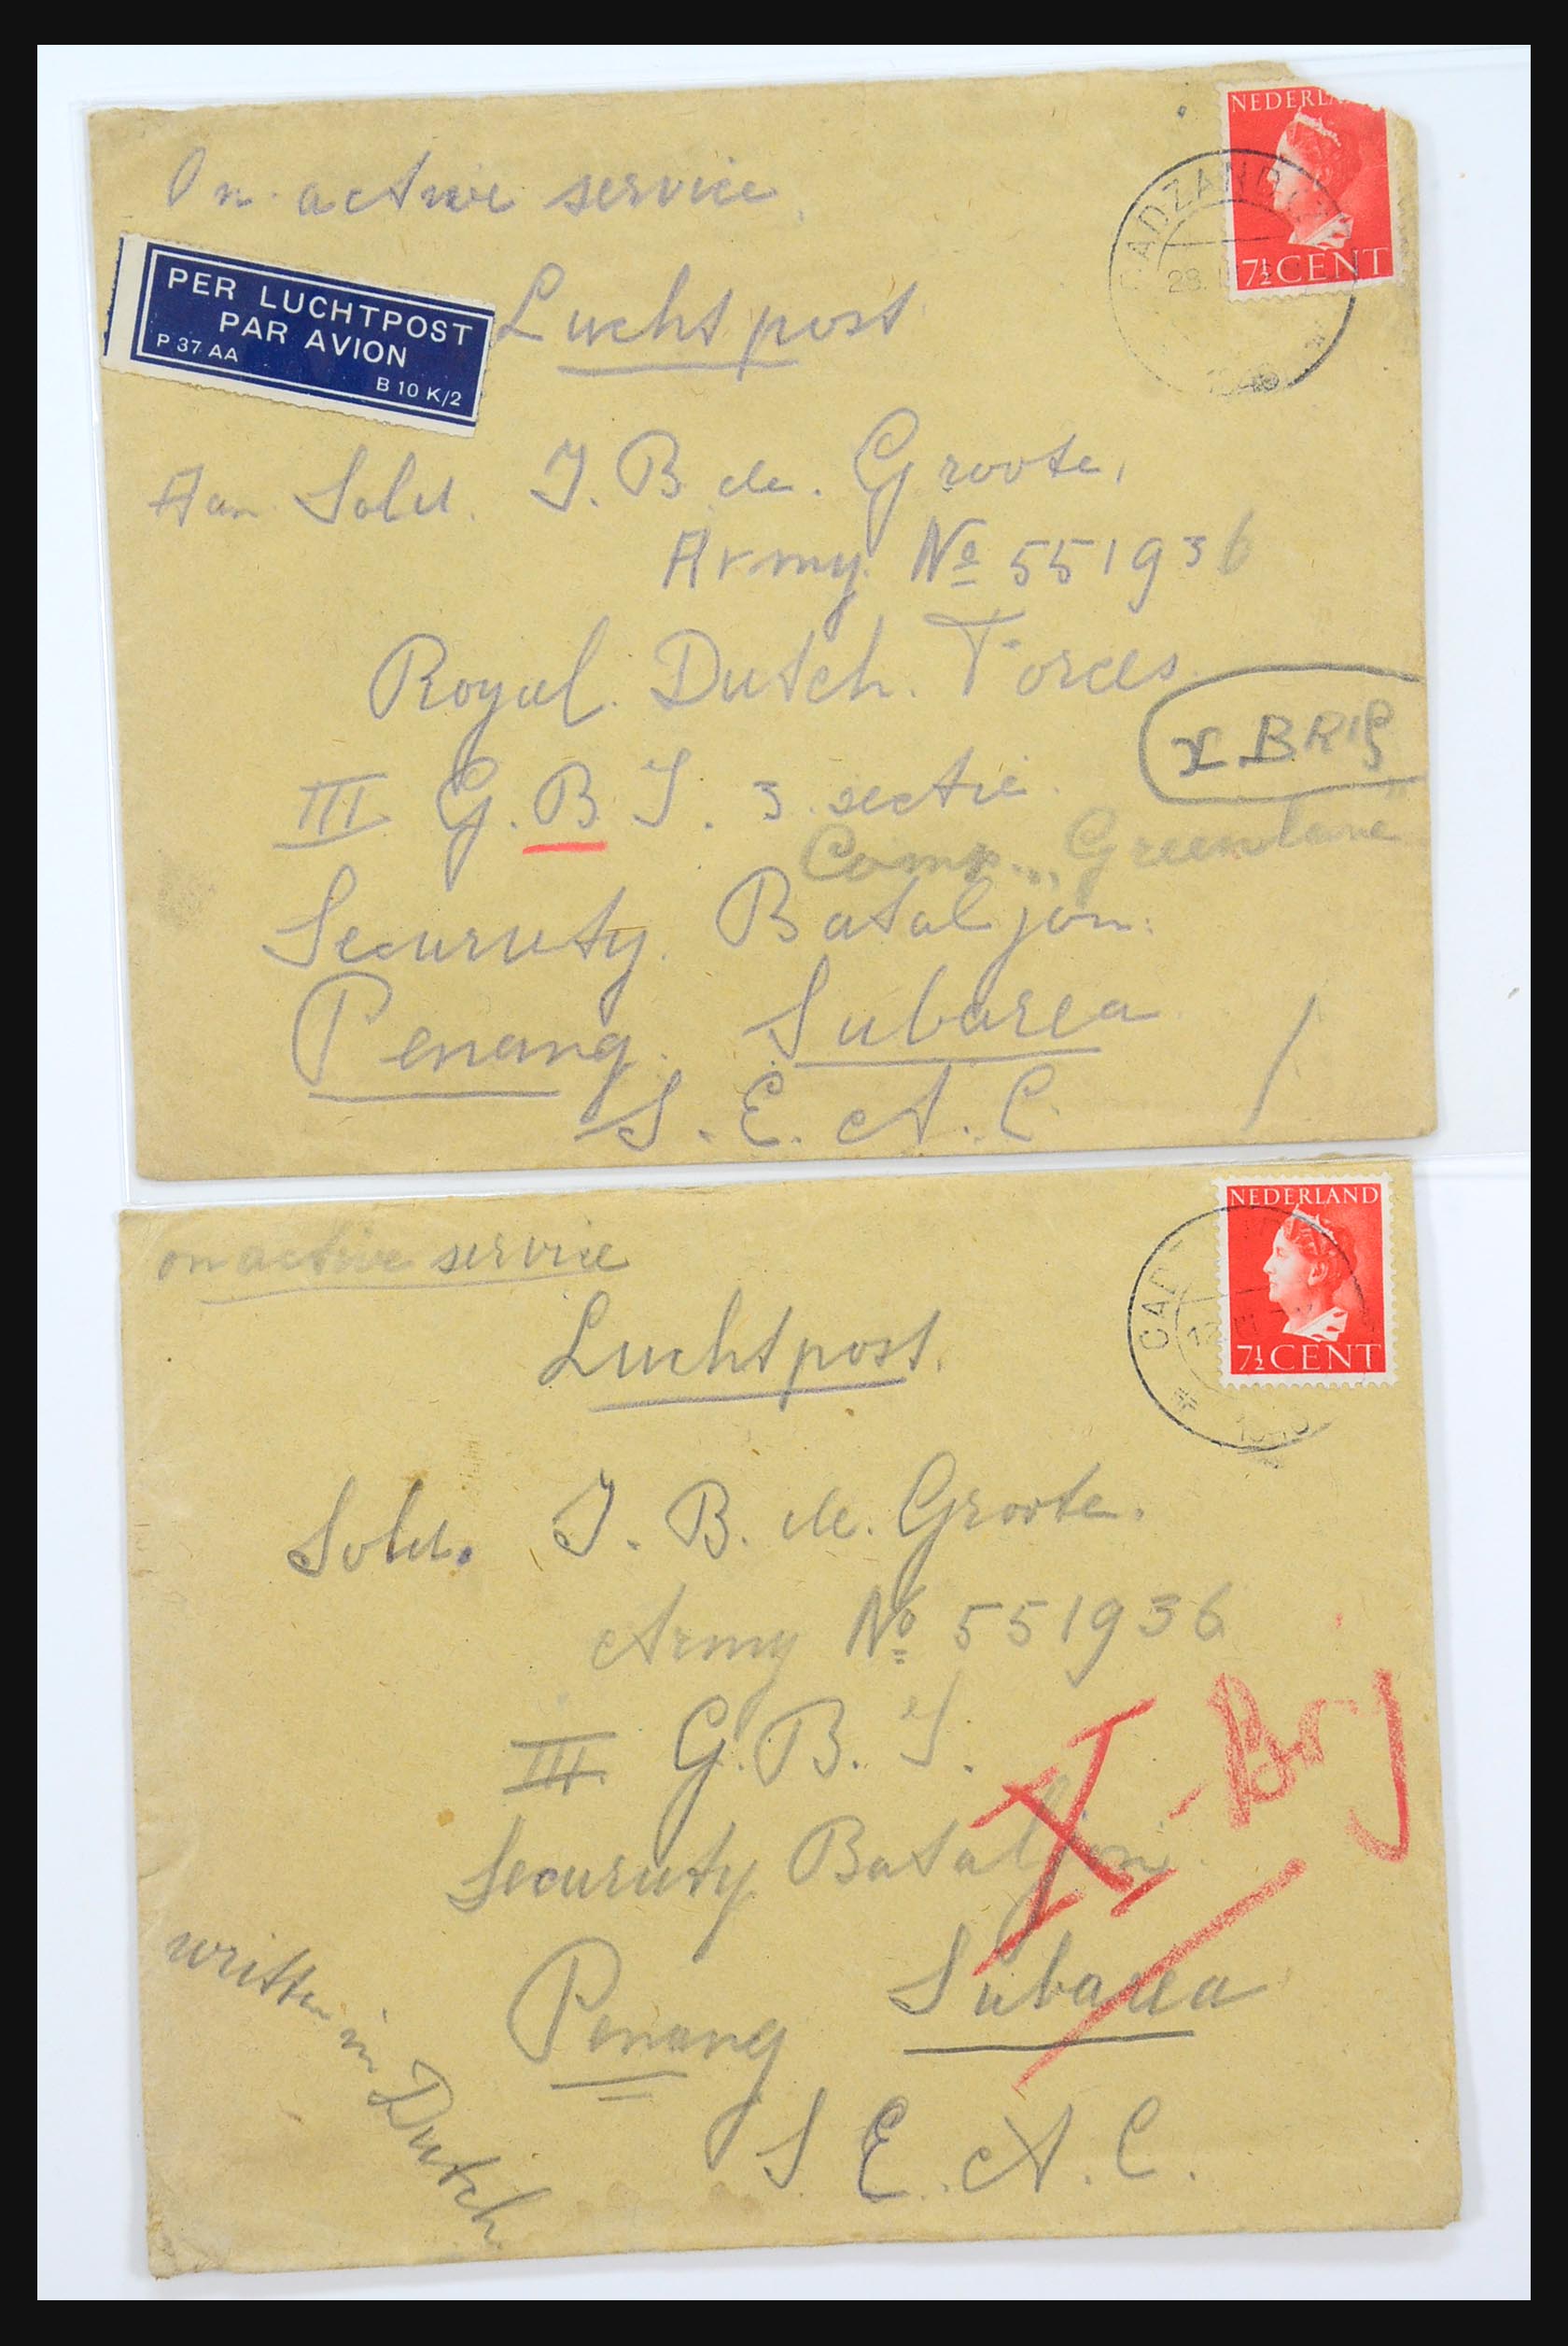 On active service
NEDERLAND
7½ CENT
CADZAND
28.
PER LUCHTPOST
PAR AVION
P 37 AA
B 10 K/2
Luchtpost
Aan Sold. J. B. de. Groote,
Army. No 551936
Royal. Dutch. Forces
X BRIG
III G. B. I. 3 sectie.
Comp. „Greenlane"
Securuty. Bataljon.
Penang. Subarea
S. E. A. C
on active service
NEDERLAND
7½ CENT
CAD
12. III
Luchtpost.
Sold. J. B. de. Groote.
Army No 551936
III G. B. I.
X - Br
Securuty Bataljon.
Penang Subarea
S. E. A. C.
written in Dutch